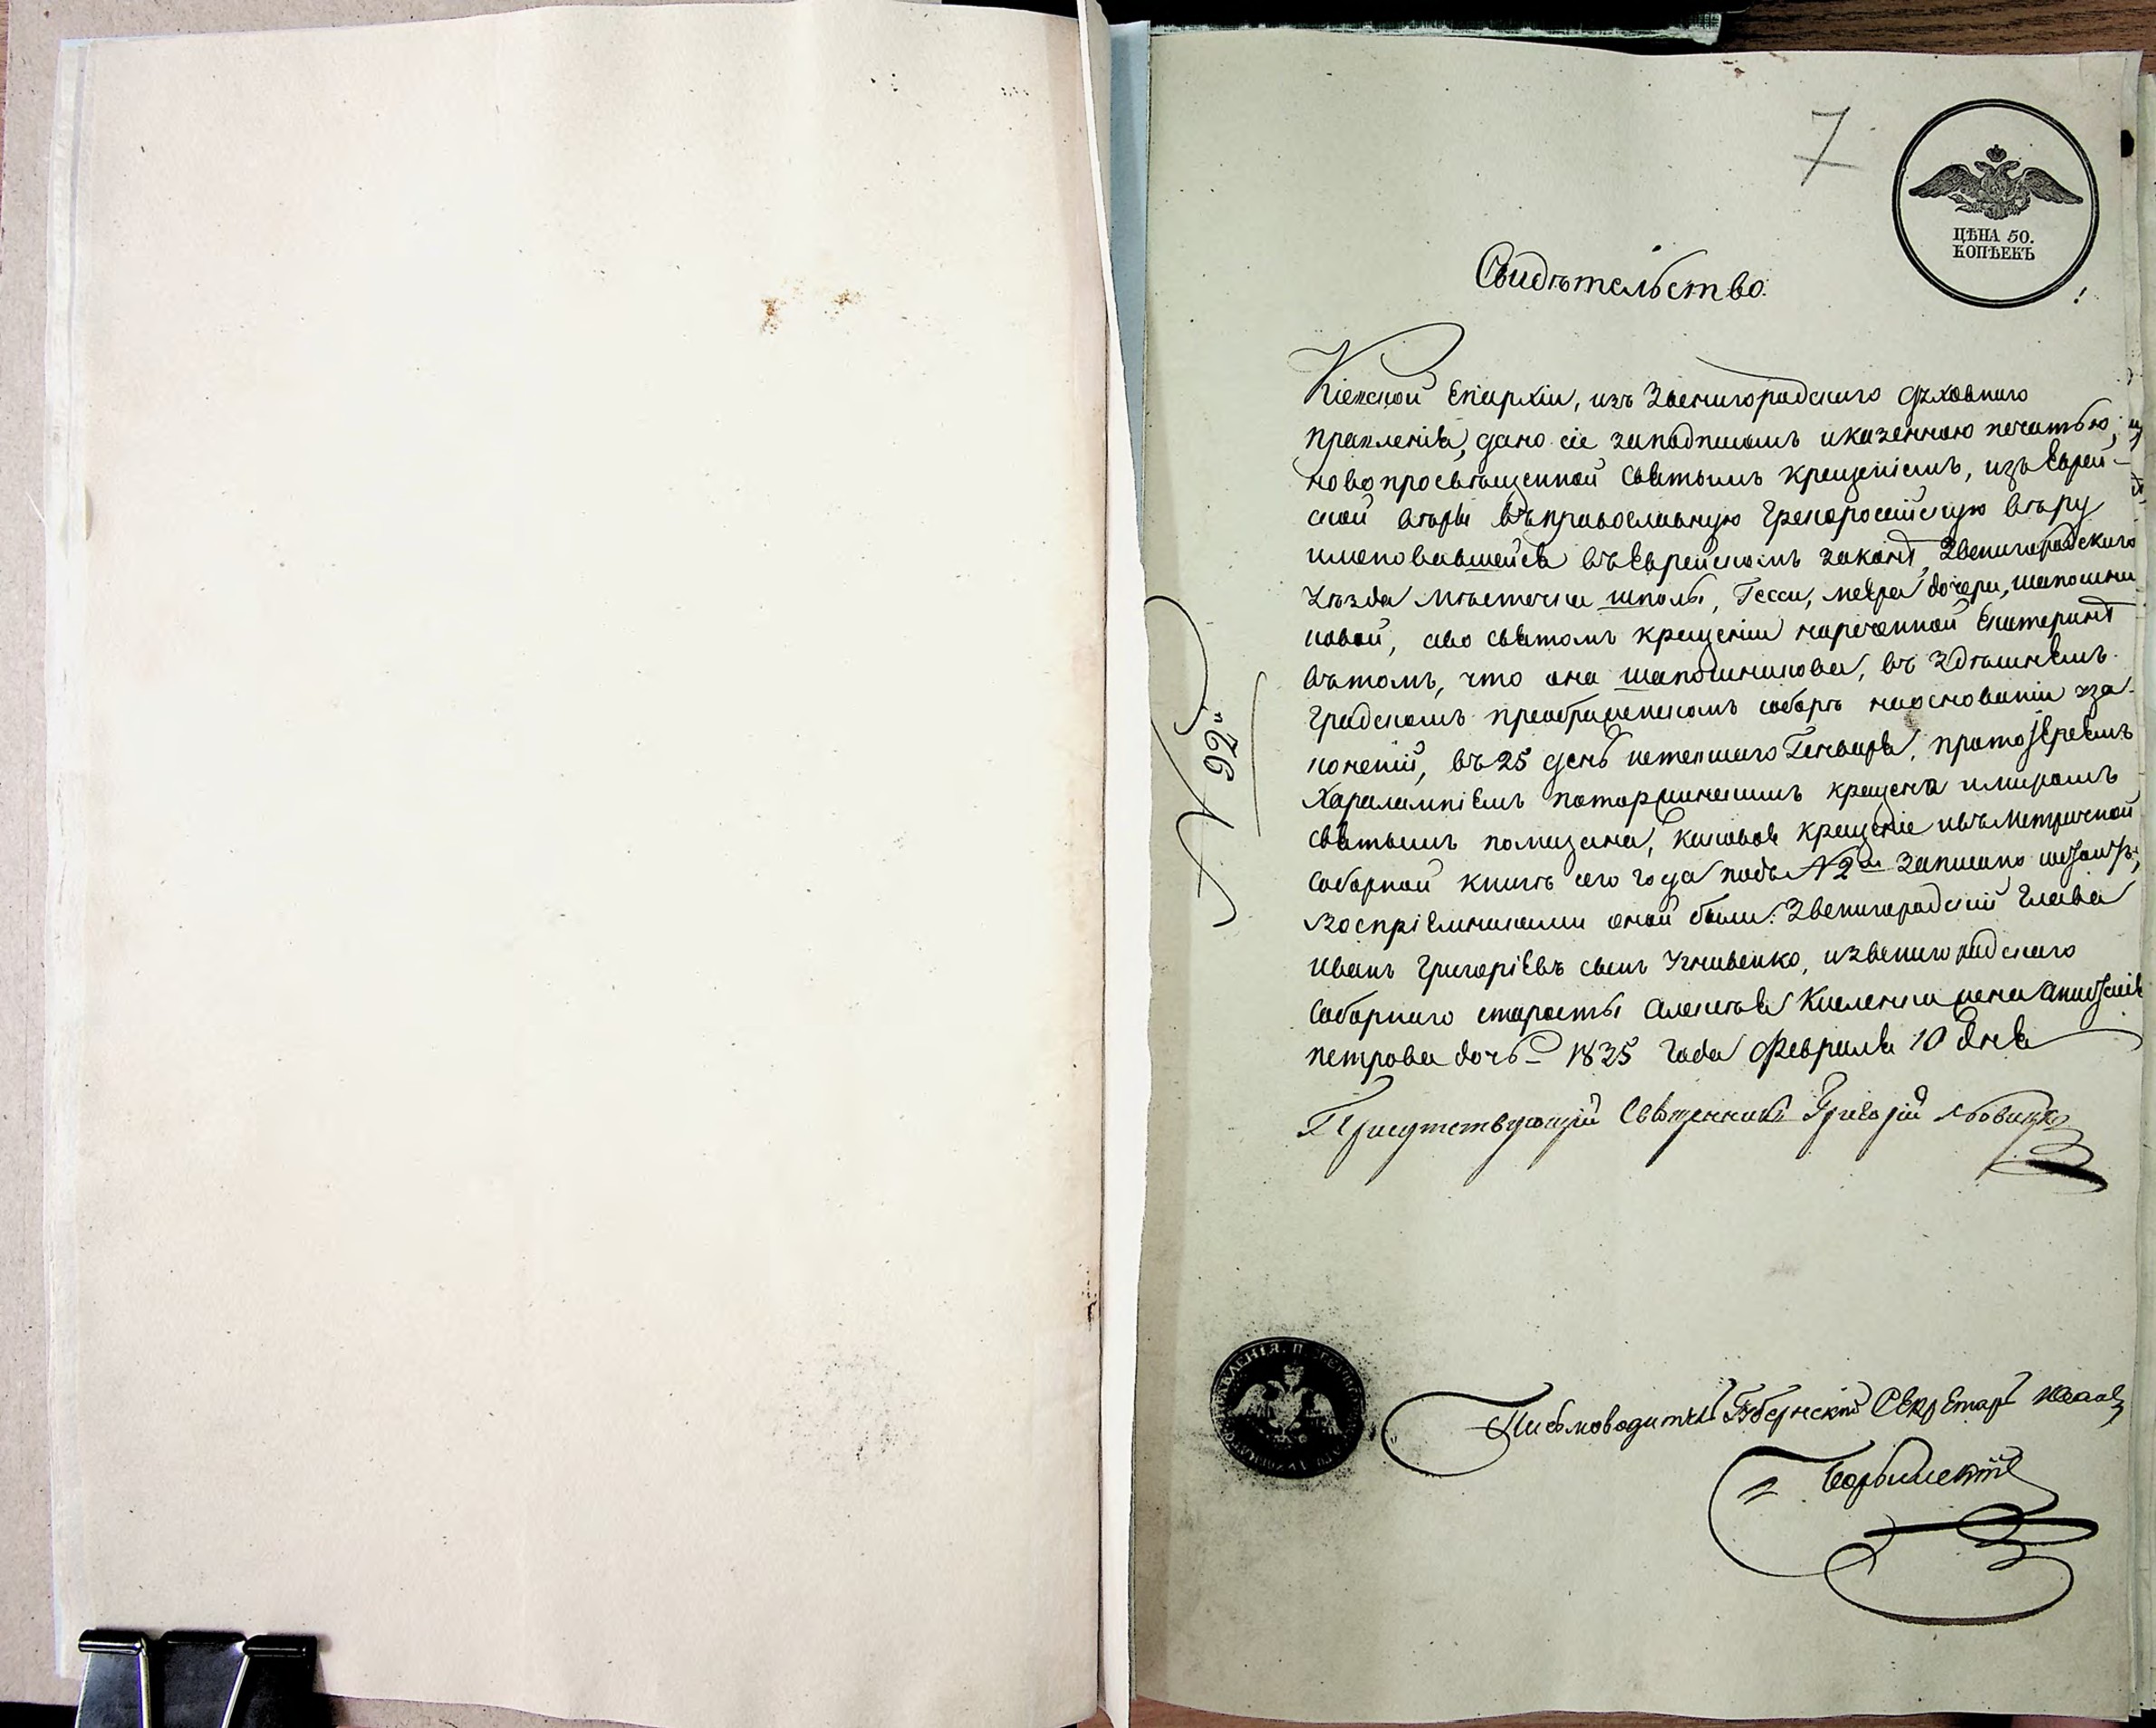 7
ЦѢНА 50.
КОПѢЕКЪ
Свидѣтельство.
Кіевской Епархіи, изъ Звенигородскаго духовнаго
правленія, дано сіе заподписомъ иказенною печатью,
новопросвѣщенной святымъ крещеніемъ, изъ Еврей-
ской вѣры въправославную Грекороссійскую вѣру
именовавшейся въЕврейскомъ законѣ, Звенигородскаго
Уѣзда мѣстечка шполы, Гесси, меера дочери, шапошни
ковой, аво святомъ крещеніи нареченной Екатеринѣ
вътомъ, что она шапошникова, въ здѣшнемъ
Градскомъ преображенскомъ соборѣ наоснованіи уза-
коненій, въ 25 день истекшаго Генваря, протоіереемъ
Харалампіемъ крещена имиромъ
святымъ помазана, каковое крещеніе ивъметричной
соборной книгѣ сего года подъ N 2м записано
Воспріемниками оной были: Звенигородскій Глава
иванъ Григоріевъ сынъ Угнивенко, извенигородскаго
соборнаго старосты алексѣя Киселенка жена
петрова дочь – 1835 года Февраля 10 дня
N 92"
Присутствующій Священникъ Григорій
Письмоводитель Губернскій Секретарь